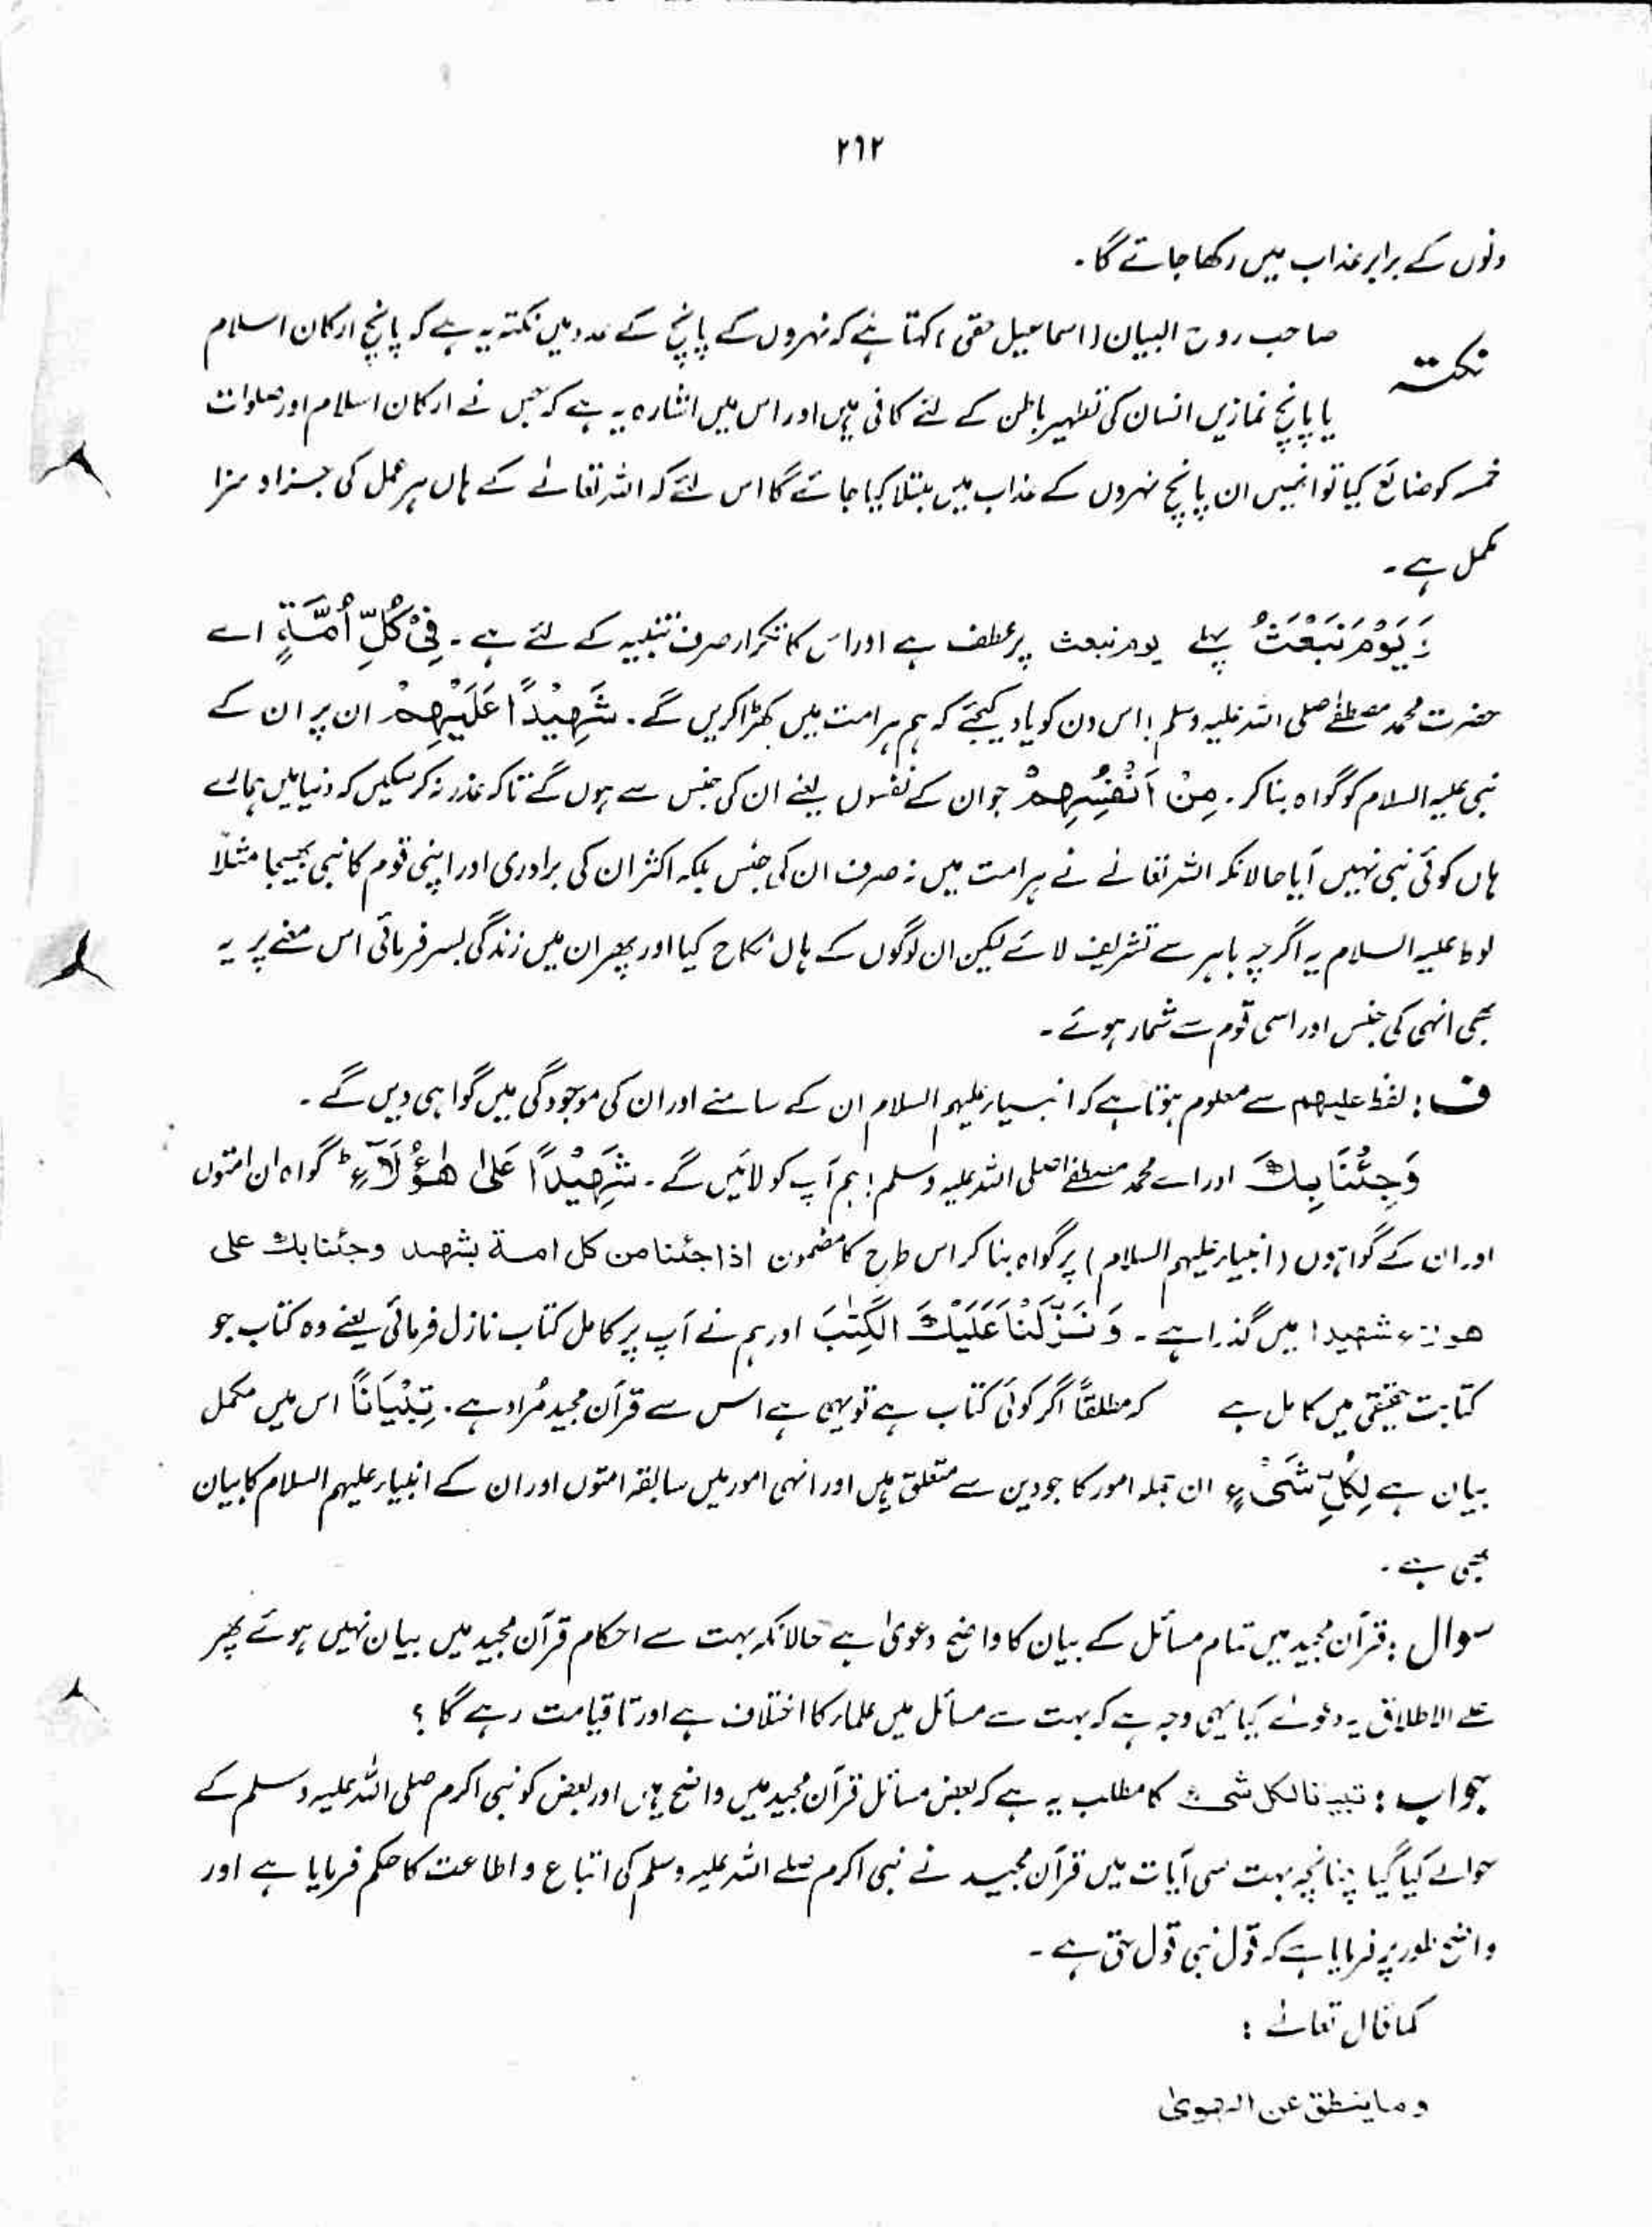 ۲۶۲
دنوں کے برابر عذاب میں رکھا جائے گا۔
نکتہ
صاحب روح البیان (اسماعیل حقی) کہتا ہے کہ نہروں کے پانچ کے عدد میں نکتہ یہ ہے کہ پانچ ارکان اسلام
یا پانچ نمازیں انسان کی تطہیر باطن کے لئے کافی ہیں اور اس میں اشارہ یہ ہے کہ جس نے ارکان اسلام اور صلوات
خمسہ کو ضائع کیا تو انہیں ان پانچ نہروں کے عذاب میں مبتلا کیا جائے گا اس لئے کہ اللہ تعالےٰ کے ہاں ہر عمل کی جزاو سزا
مکمل ہے۔
وَیَوْمَ نَبْعَثُ پہلے یوم نبعث پر عطف ہے اور اس کا تکرار صرف تنبیہ کے لئے ہے۔ فِیْ کُلِّ اُمَّۃٍ اے
حضرت محمد مصطفےٰ صلی اللہ علیہ وسلم! اس دن کو یاد کیجئے کہ ہم ہر امت میں کھڑا کریں گے۔ شَہِیْدًا عَلَیْہِمْ ان پر ان کے
نبی علیہ السلام کو گواہ بنا کر۔ مِنْ اَنْفُسِہِمْ جو ان کے نفسوں یعنے ان کی جنس سے ہوں گے تاکہ عذر نہ کرسکیں کہ دنیا میں ہمارے
ہاں کوئی نبی نہیں آیا حالانکہ اللہ تعالےٰ نے ہر امت میں نہ صرف ان کی جنس بلکہ اکثر ان کی برادری اور اپنی قوم کا نبی بھیجا مثلاً
لوط علیہ السلام یہ اگرچہ باہر سے تشریف لائے لیکن ان لوگوں کے ہاں نکاح کیا اور پھر ان میں زندگی بسر فرمائی اس معنے پر یہ
بھی انہی کی جنس اور اسی قوم سے شمار ہوئے۔
ف: لفظ علیہم سے معلوم ہوتا ہے کہ انبیاء علیہم السلام ان کے سامنے اور ان کی موجودگی میں گواہی دیں گے۔
وَجِئْنَا بِکَ اور اے محمد مصطفےٰ صلی اللہ علیہ وسلم! ہم آپ کو لائیں گے۔ شَہِیْدًا عَلٰی ھٰؤُلَآءِ ط گواہ ان امتوں
اور ان کے گواہوں (انبیاء علیہم السلام) پر گواہ بنا کر اس طرح کا مضمون اذا جئنا من کل امۃ بشھید وجئنا بک علی
ھؤلاء شھیدا میں گذرا ہے۔ وَنَزَّلْنَا عَلَیْکَ الْکِتٰبَ اور ہم نے آپ پر کامل کتاب نازل فرمائی یعنے وہ کتاب جو
کتابت حقیقی میں کامل ہے کہ مطلقاً اگر کوئی کتاب ہے تو یہی ہے اس سے قرآن مجید مُراد ہے۔ تِبْیَانًا اس میں مکمل
بیان ہے لِکُلِّ شَیْءٍ ان جملہ امور کا جو دین سے متعلق ہیں اور انہی امور میں سابقہ امتوں اور ان کے انبیاء علیہم السلام کا بیان
بھی ہے۔
سوال: قرآن مجید میں تمام مسائل کے بیان کا واضح دعویٰ ہے حالانکہ بہت سے احکام قرآن مجید میں بیان نہیں ہوئے پھر
علے الاطلاق یہ دعوےٰ کیا یہی وجہ ہے کہ بہت سے مسائل میں علماء کا اختلاف ہے اور تا قیامت رہے گا؟
جواب: تبیانا لکل شیء کا مطلب یہ ہے کہ بعض مسائل قرآن مجید میں واضح ہیں اور بعض کو نبی اکرم صلی اللہ علیہ وسلم کے
حوالے کیا گیا چنانچہ بہت سی آیات میں قرآن مجید نے نبی اکرم صلے اللہ علیہ وسلم کی اتباع و اطاعت کا حکم فرمایا ہے اور
واضح طور پر فرمایا ہے کہ قول نبی قول حق ہے۔
کما قال تعالےٰ:
وما ینطق عن الھویٰ